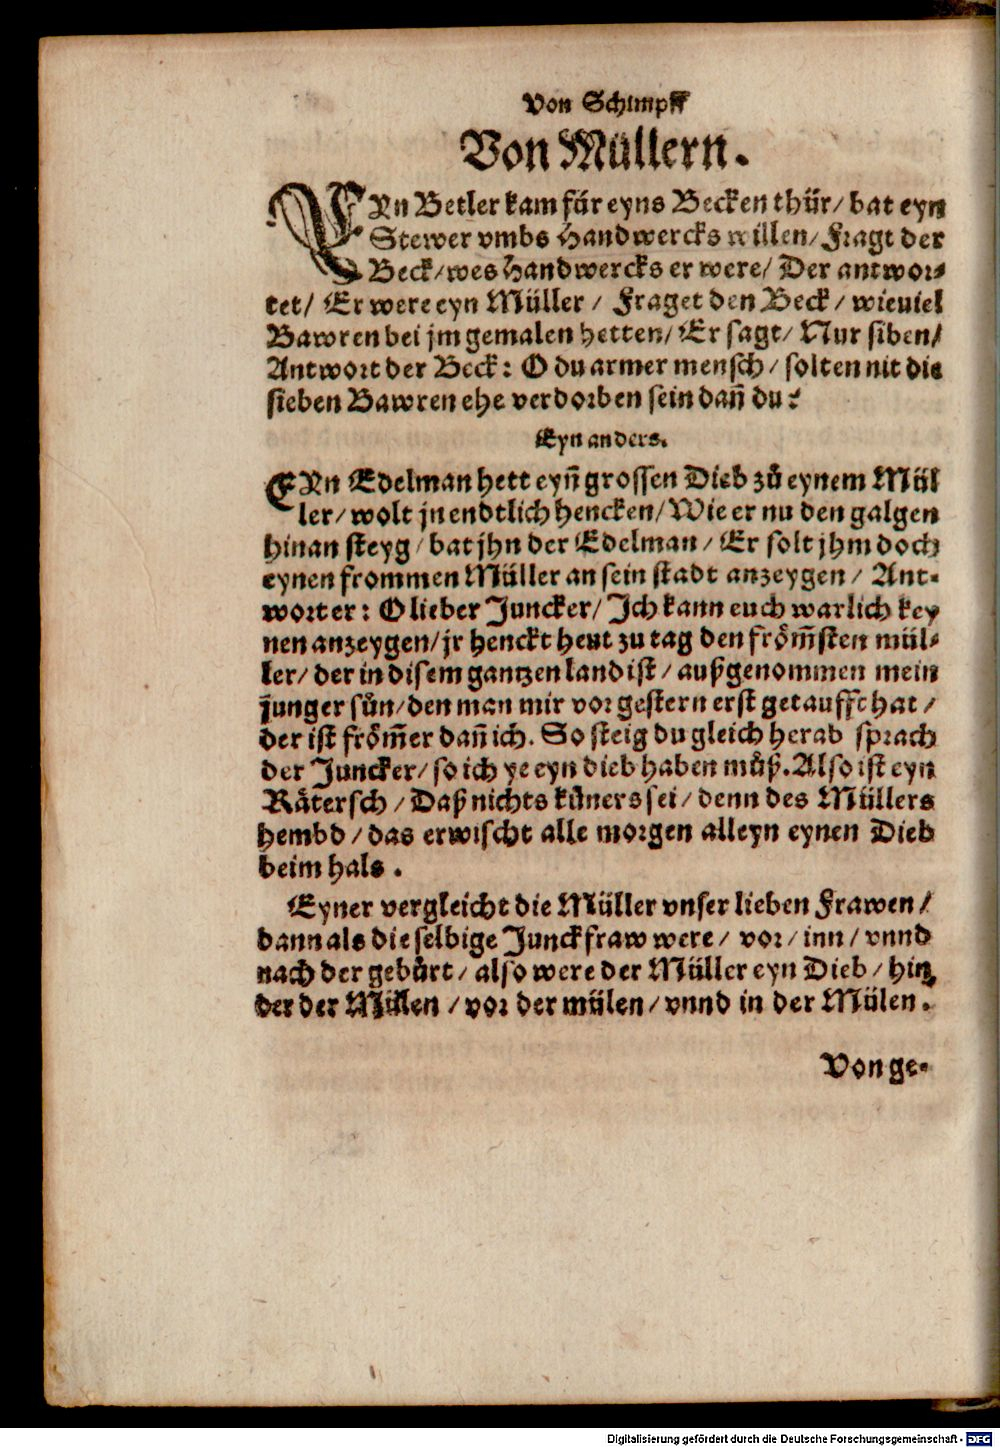 Von Schimpff
Von Müllern.
EYn Betler kam für eyns Becken thür/ bat eyn
Stewer vmbs Handwercks willen/ Fragt der
Beck/ wes Handwercks er were/ Der antwor⸗
tet/ Er were eyn Müller / Fraget den Beck / wieuiel
Bawren bei jm gemalen hetten/ Er sagt/ Nur siben/
Antwort der Beck: O du armer mensch / solten nit die
sieben Bawren ehe verdorben sein dañ du?
Eyn anders.
EYn Edelman hett eyñ grossen Dieb zů eynem Mül
ler/ wolt jn endtlich hencken/ Wie er nu den galgen
hinan steyg / bat jhn der Edelman / Er solt jhm doch
eynen frommen Müller an sein stadt anzeygen / Ant⸗
wort er: O lieber Juncker/ Ich kann euch warlich key
nen anzeygen/ jr henckt heut zu tag den fröm̃sten mül⸗
ler/ der in disem gantzen land ist / außgenommen mein
junger sůn/ den man mir vorgestern erst getaufft hat /
der ist fröm̃er dañ ich. So steig du gleich herab sprach
der Juncker/ so ich ye eyn dieb haben můß. Also ist eyn
Rätersch / Daß nichts küners sei / denn des Müllers
hembd / das erwischt alle morgen alleyn eynen Dieb
beim hals .
Eyner vergleicht die Müller vnser lieben Frawen /
dann als die selbige Junckfraw were / vor / inn / vnnd
nach der gebůrt / also were der Müller eyn Dieb / hin
der der Müllen / vor der mülen / vnnd in der Mülen .
Von ge⸗
Digitalisierung gefördert durch die Deutsche Forschungsgemeinschaft - DFG